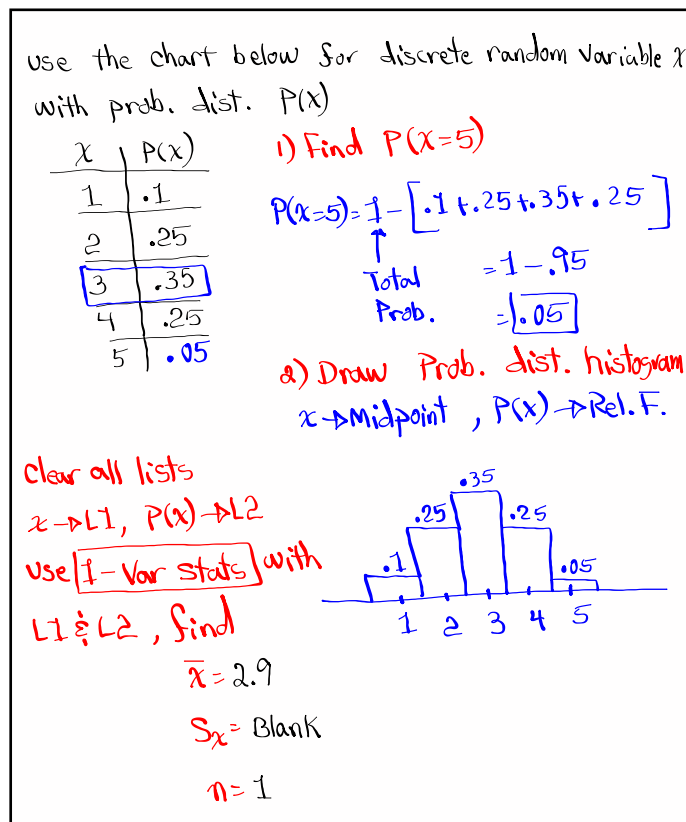 use the chart below for discrete random variable x
with prob. dist. P(x)
x P(x)
1 .1
2 .25
3 .35
4 .25
5 .05
1) Find P(x=5)
P(x=5)=1-[.1+.25+.35+.25]
Total
Prob.
=1-.95
=.05
2) Draw Prob. dist. histogram
x→Midpoint, P(x)→Rel.F.
clear all lists
x→L1, P(x)→L2
use 1-Var Stats with
L1 & L2, find
x̄=2.9
Sx= Blank
n=1
.1 .25 .35 .25 .05
1 2 3 4 5